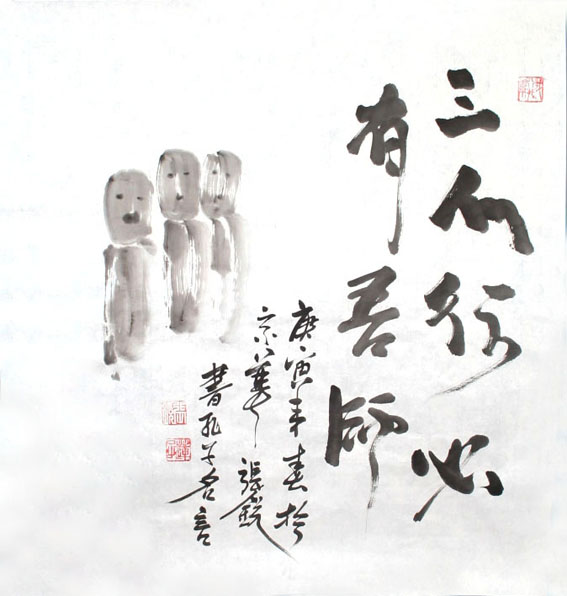 三人行必
有吾師
庚寅年春於
京華 張銳
書孔子名言